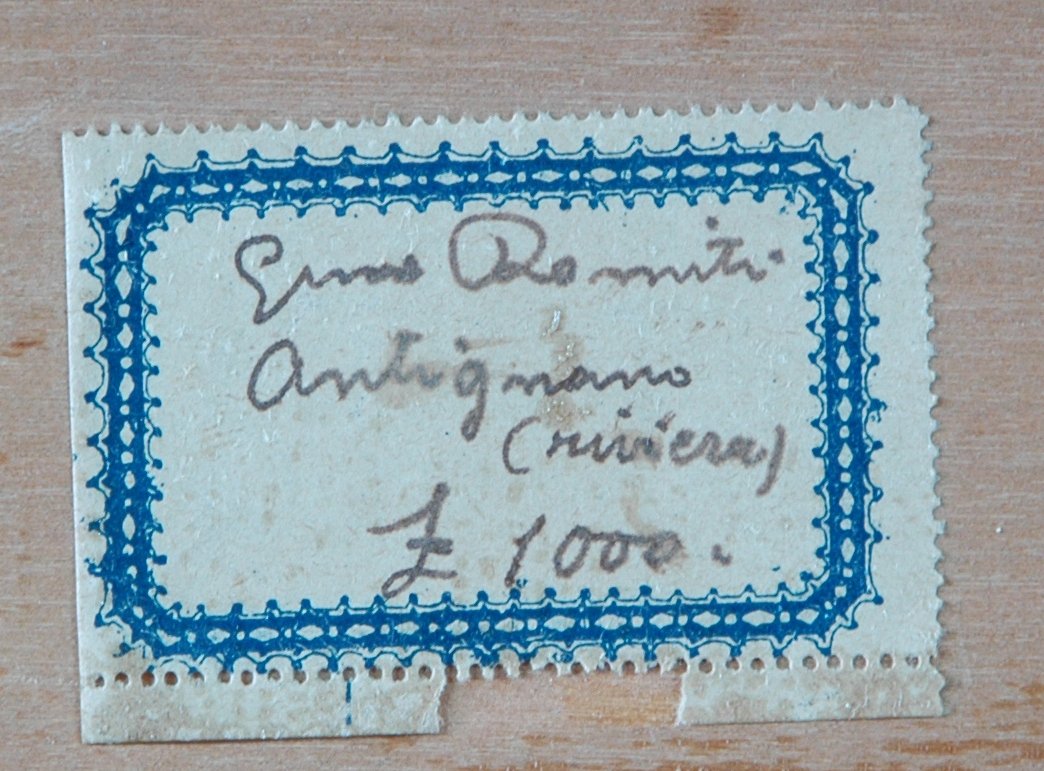 Gino Romiti
Antignano
(riviera)
£ 1000.